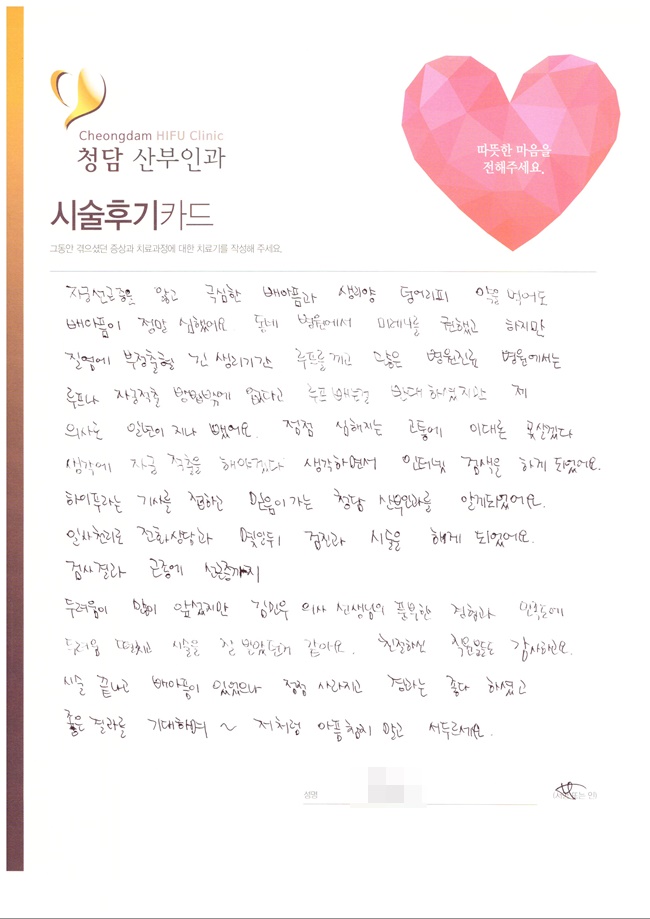 Cheongdam HIFU Clinic
청담 산부인과
따뜻한 마음을
전해주세요.
시술후기카드
그동안 겪으셨던 증상과 치료과정에 대한 치료기를 작성해 주세요.
자궁선근증을 앓고 극심한 배아픔과 생리양 덩어리피 약을 먹어도
배아픔이 정말 심했어요 동네 병원에서 미레나를 권했고 하지만
질염에 부정출혈 긴 생리기간 루프를 끼고 병원진료 병원에서는
루프나 자궁적출 방법밖에 없다고 루프 빼는걸 반대 하셨지만 제
의사로 일년이 지나 뺐어요. 점점 심해지는 고통에 이대론 못살겠다
생각에 자궁 적출을 해야겠다 생각하면서 인터넷 검색을 하게 되었어요.
하이푸라는 기사를 접하고 믿음이 가는 청담 산부인과를 알게되었어요.
일사천리로 전화상담과 몇일뒤 검진과 시술을 하게 되었어요.
검사결과 근종에 선근증까지
두려움이 많이 앞섰지만 김민우 의사 선생님의 풍부한 경험과
두려움 떨치고 시술을 잘 받았던거 같아요. 친절하신 직원분들도 감사하고요.
시술 끝나고 배아픔이 있었으나 점점 사라지고 경과는 좋다 하셨고
좋은 결과를 기대하며 ~ 저처럼 아픔 참지 말고 서두르세요.
성명